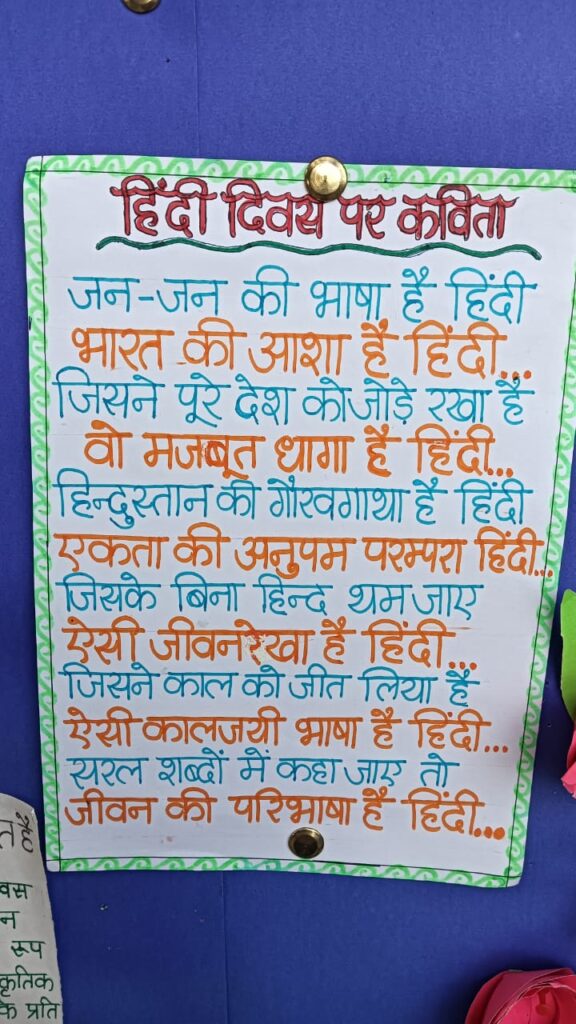 हिंदी दिवस पर कविता
जन-जन की भाषा है हिंदी
भारत की आशा है हिंदी...
जिसने पूरे देश को जोड़े रखा है
वो मजबूत धागा है हिंदी...
हिन्दुस्तान की गौरवगाथा है हिंदी
एकता की अनुपम परम्परा हिंदी...
जिसके बिना हिन्द थम जाए
ऐसी जीवनरेखा है हिंदी...
जिसने काल को जीत लिया है
ऐसी कालजयी भाषा है हिंदी...
सरल शब्दों में कहा जाए तो
जीवन की परिभाषा है हिंदी...
वस
न
रूप
कृतिक
के प्रति